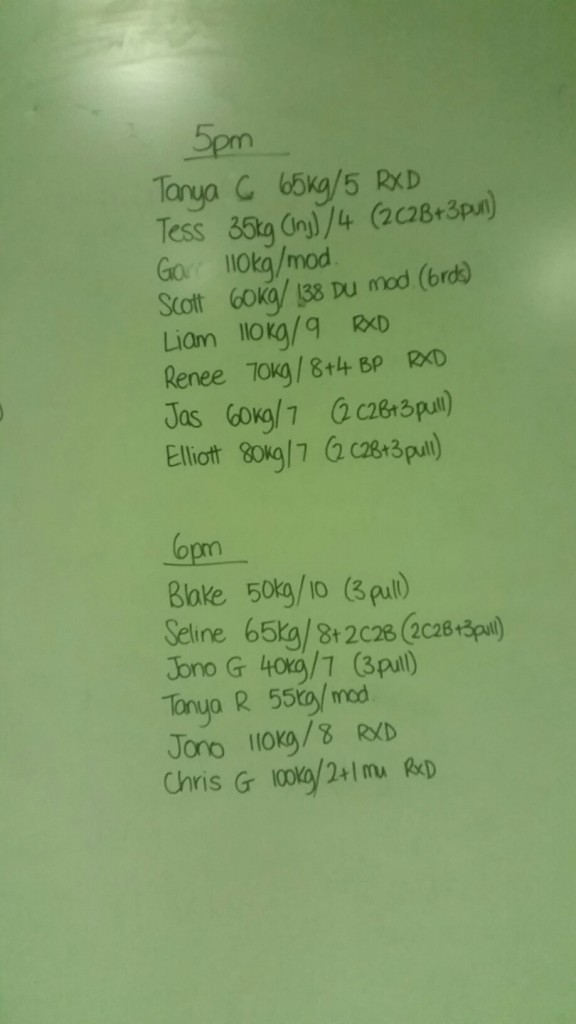 5pm
Tanya C 65kg/5 RXD
Tess 35kg (Inj)/4 (2C2B+3pull)
110kg/mod.
Scott 60kg/138 DU mod (6rds)
Liam 110kg/9 RXD
Renee 70kg/8+4 BP RXD
Jas 60kg/7 (2C2B+3pull)
Elliott 80kg/7 (2C2B+3pull)
6pm
Blake 50kg/10 (3pull)
Seline 65kg/8+2C2B (2C2B+3pull)
Jono G 40kg/7 (3pull)
Tanya R 55kg/mod.
Jono 110kg/8 RXD
Chris G 100kg/2+1mu RXD